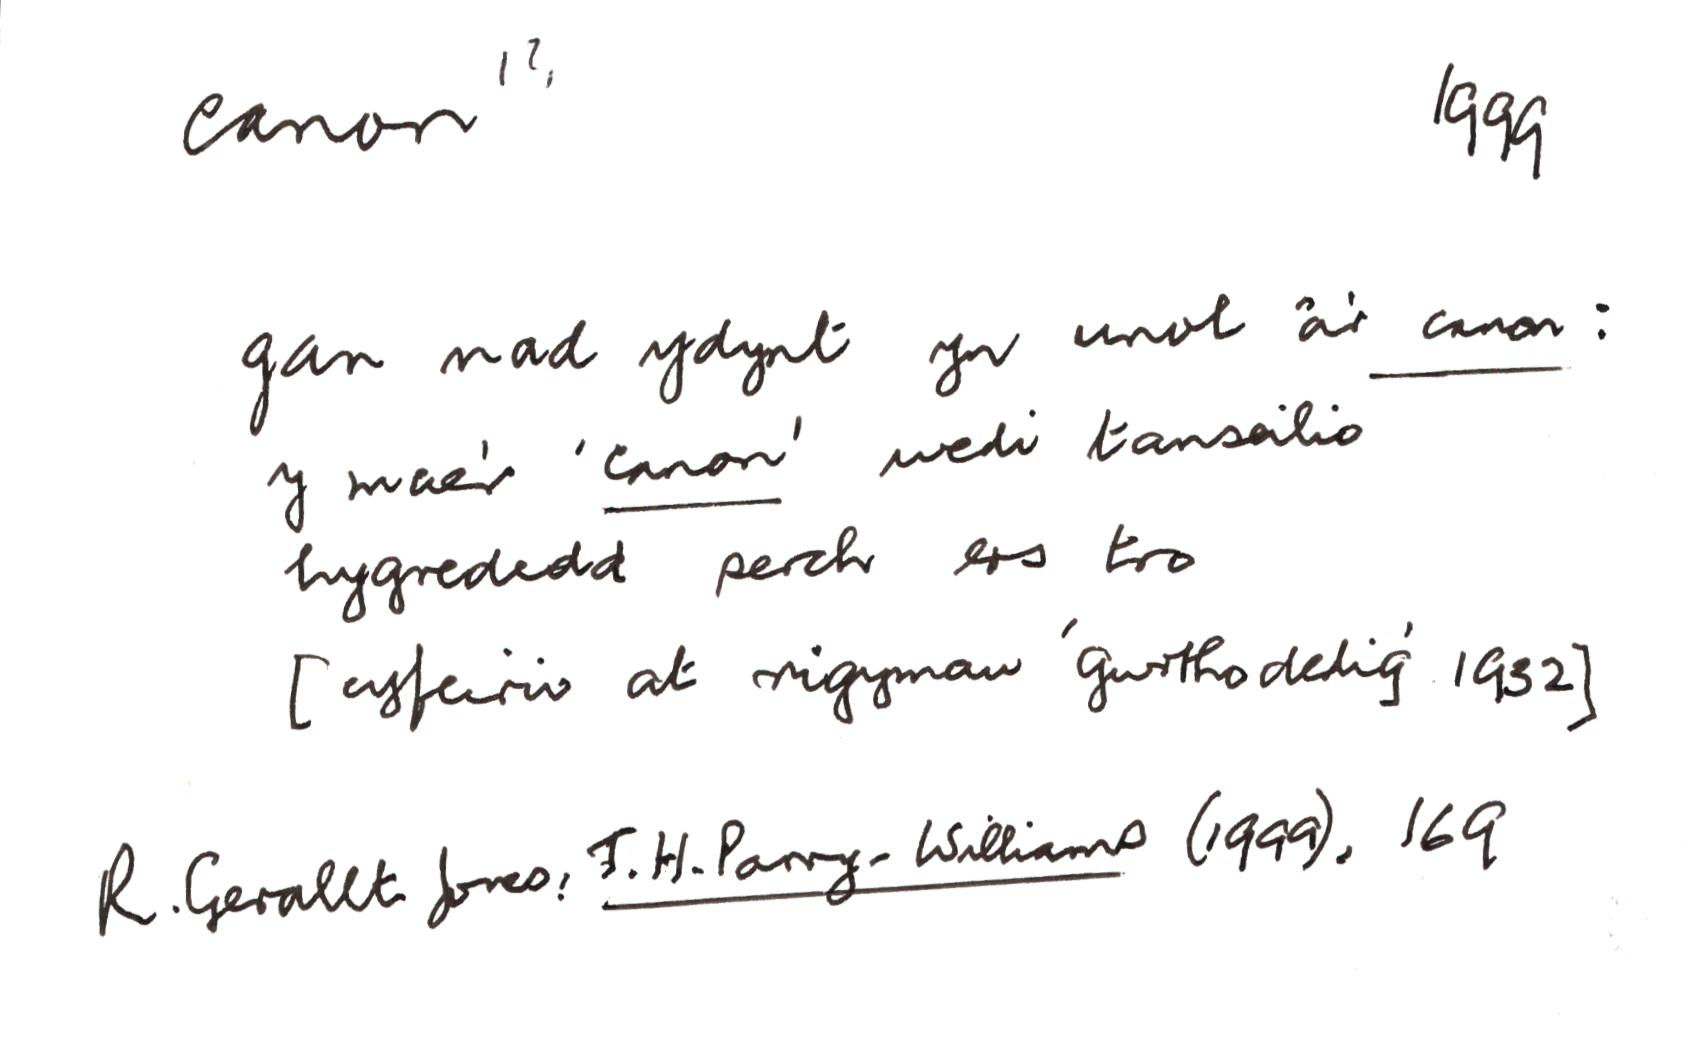 canon 1?, 1999
gan nad ydynt yn unol â'r canon:
y mae'r 'canon' wedi tanseilio
hygrededd perch ers tro
[cyfeirio at rigymau 'gwrthodedig' 1932]
R. Gerallt Jones: T.H. Parry-Williams (1999), 169